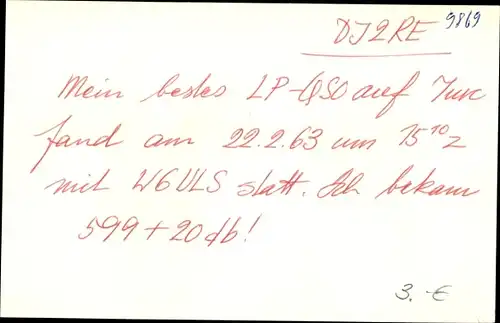 DJ2RE 9869
Mein bestes LP-QSO auf 7mc
fand am 22.2.63 um 15¹⁰z
mit W6ULS statt. Ich bekam
599+20db!
3.-€